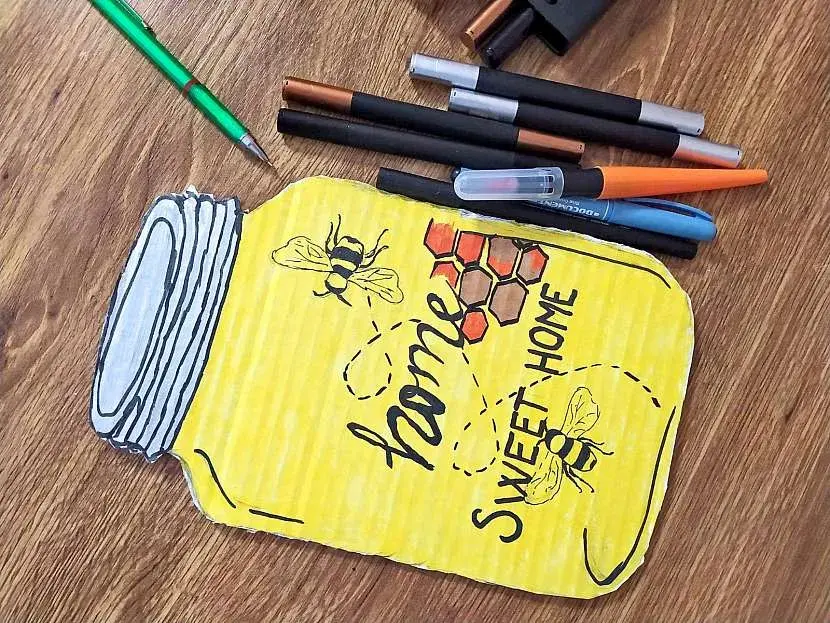 home
SWEET HOME
DOCUMENT